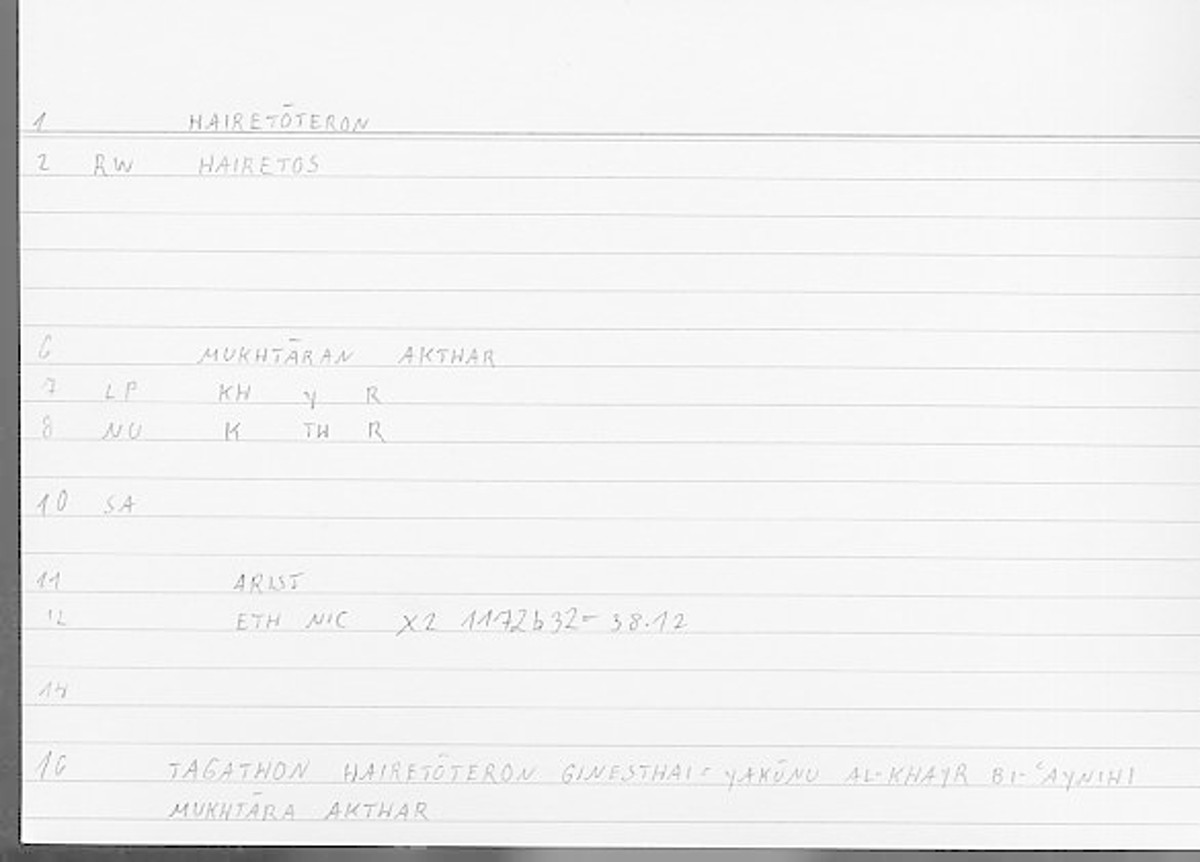 1 HAIRETŌTERON
2 RW HAIRETOS
6 MUKHTĀRAN AKTHAR
7 LP KH Y R
8 NU K TH R
10 SA
11 ARIST
12 ETH NIC X2 1172b32= 38.12
14
16 TAGATHON HAIRETŌTERON GINESTHAI= YAKŪNU AL-KHAYR BI-ʿAYNIHI
MUKHTĀRA AKTHAR